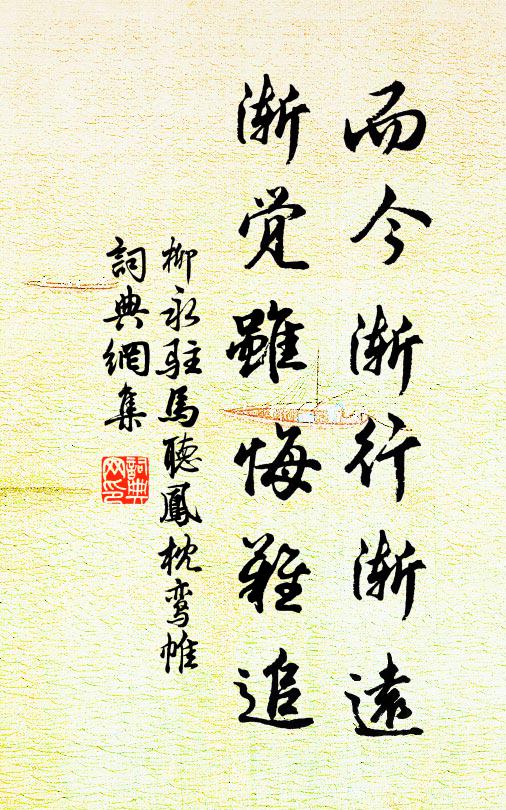 而今漸行漸遠
漸覚雖悔難追
柳永駐馬聽鳳枕鸾帷
詞典網集
詞典网印